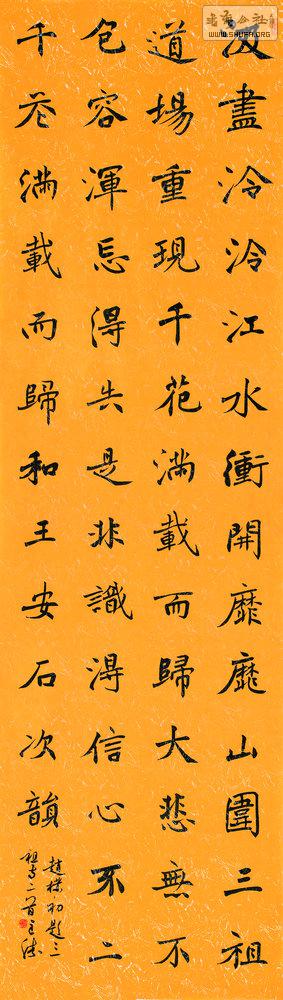 汲盡泠泠江水衝開靡靡山圍三祖
道場重現千花滿載而歸大悲無不
包容渾忘得失是非識得信心不二
千花滿載而歸和王安石次韻
趙樸初題三
祖寺二首
WWW.SHUFA.ORG